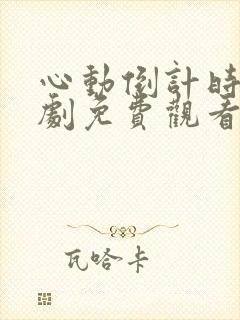 心動倒計時
劇免費觀看
瓦哈卡